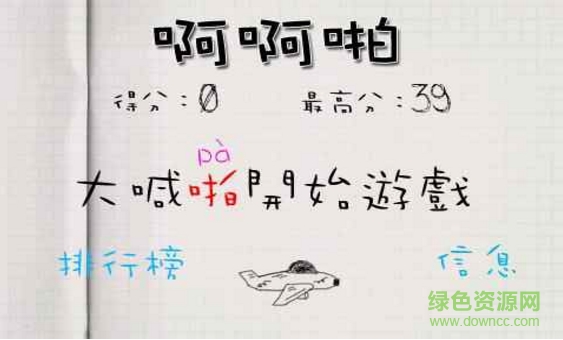 啊啊啪
得分:0 最高分:39
pà
大喊啪開始遊戲
排行榜 信息
绿色资源网
www.downcc.com